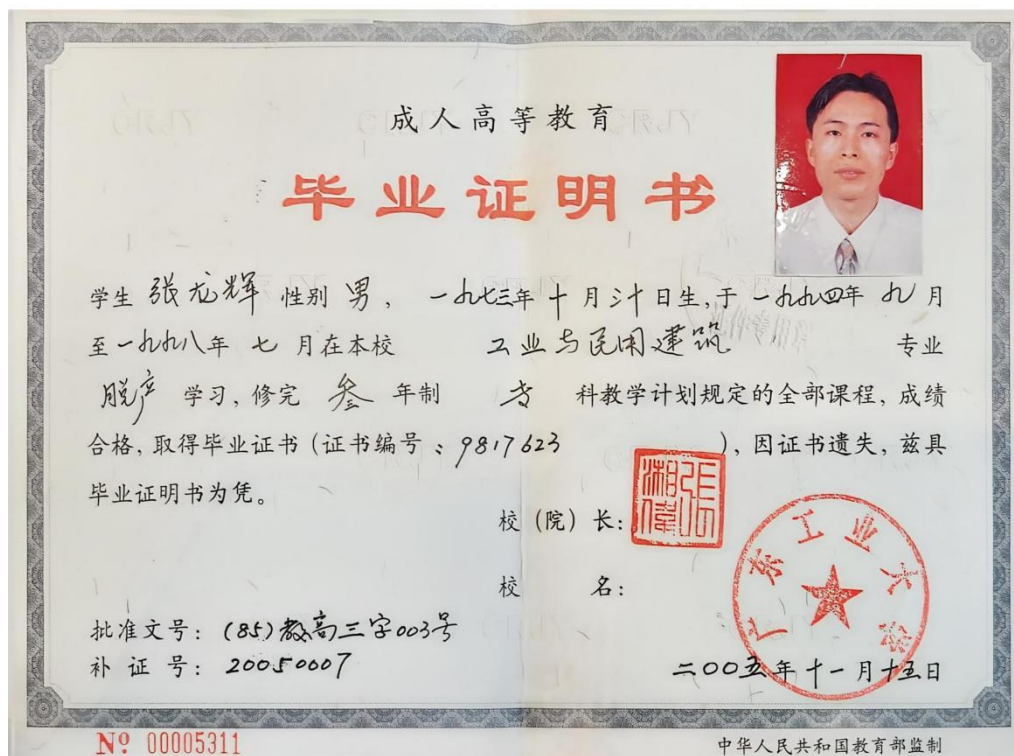 成人高等教育
毕业证明书
学生 张龙辉 性别 男，一九七三年十月三十日生，于一九九四年九月
至一九九八年七月在本校 工业与民用建筑 专业
脱产 学习，修完 叁 年制 专 科教学计划规定的全部课程，成绩
合格，取得毕业证书（证书编号：9817623），因证书遗失，兹具
毕业证明书为凭。
校（院）长：
张湘伟
校 名：
广东工业大学
批准文号：(85)教高三字003号
补 证 号：20050007
二00五年十一月十五日
Nº 00005311
中华人民共和国教育部监制